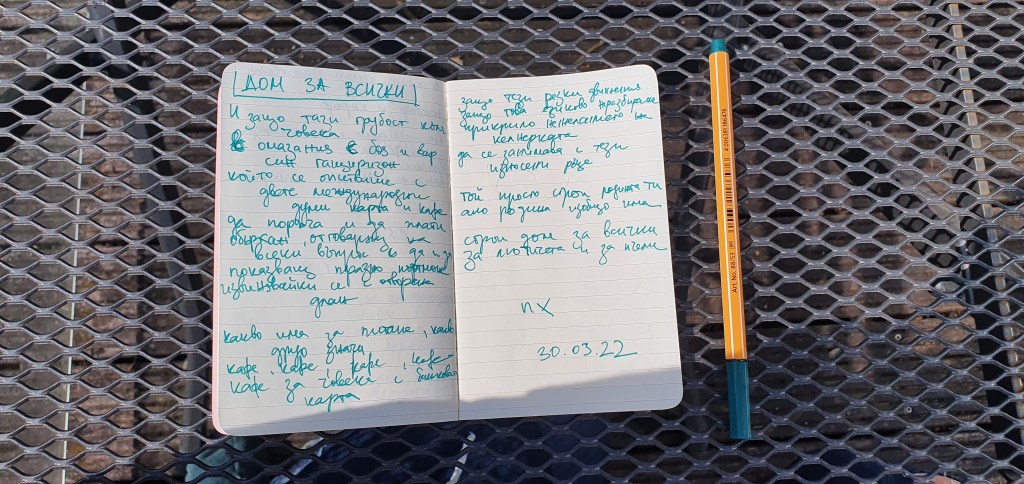 ДОМ ЗА ВСИЧКИ
И защо тази грубост към
човека
омазания с боя и вар
син гащеризон
който се опитваше с
двете международни
думи карта и кафе
да поръча и да плати
объркан, отговаряш на
всеки въпрос с да и
показваш празно
извинявайки се с отворена
длан
какво има за питане, какво
друго значи
кафе, кафе, кафе, кафе
кафе за човека с банкова
карта
защо тези резки движения
защо това фалшиво неразбиране
на
келнерката
да се занимава с тези
износени ръце
Той просто строи родината ти
ако родина изобщо има
строи дом за всички
за лютичета и за пчели
пх
30.03.22
Art. No. 88/53